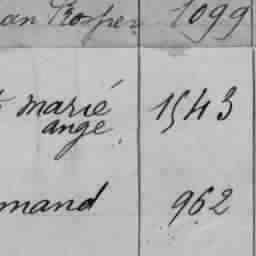 an Prosper 1099
marié 1543
ange
mand 962